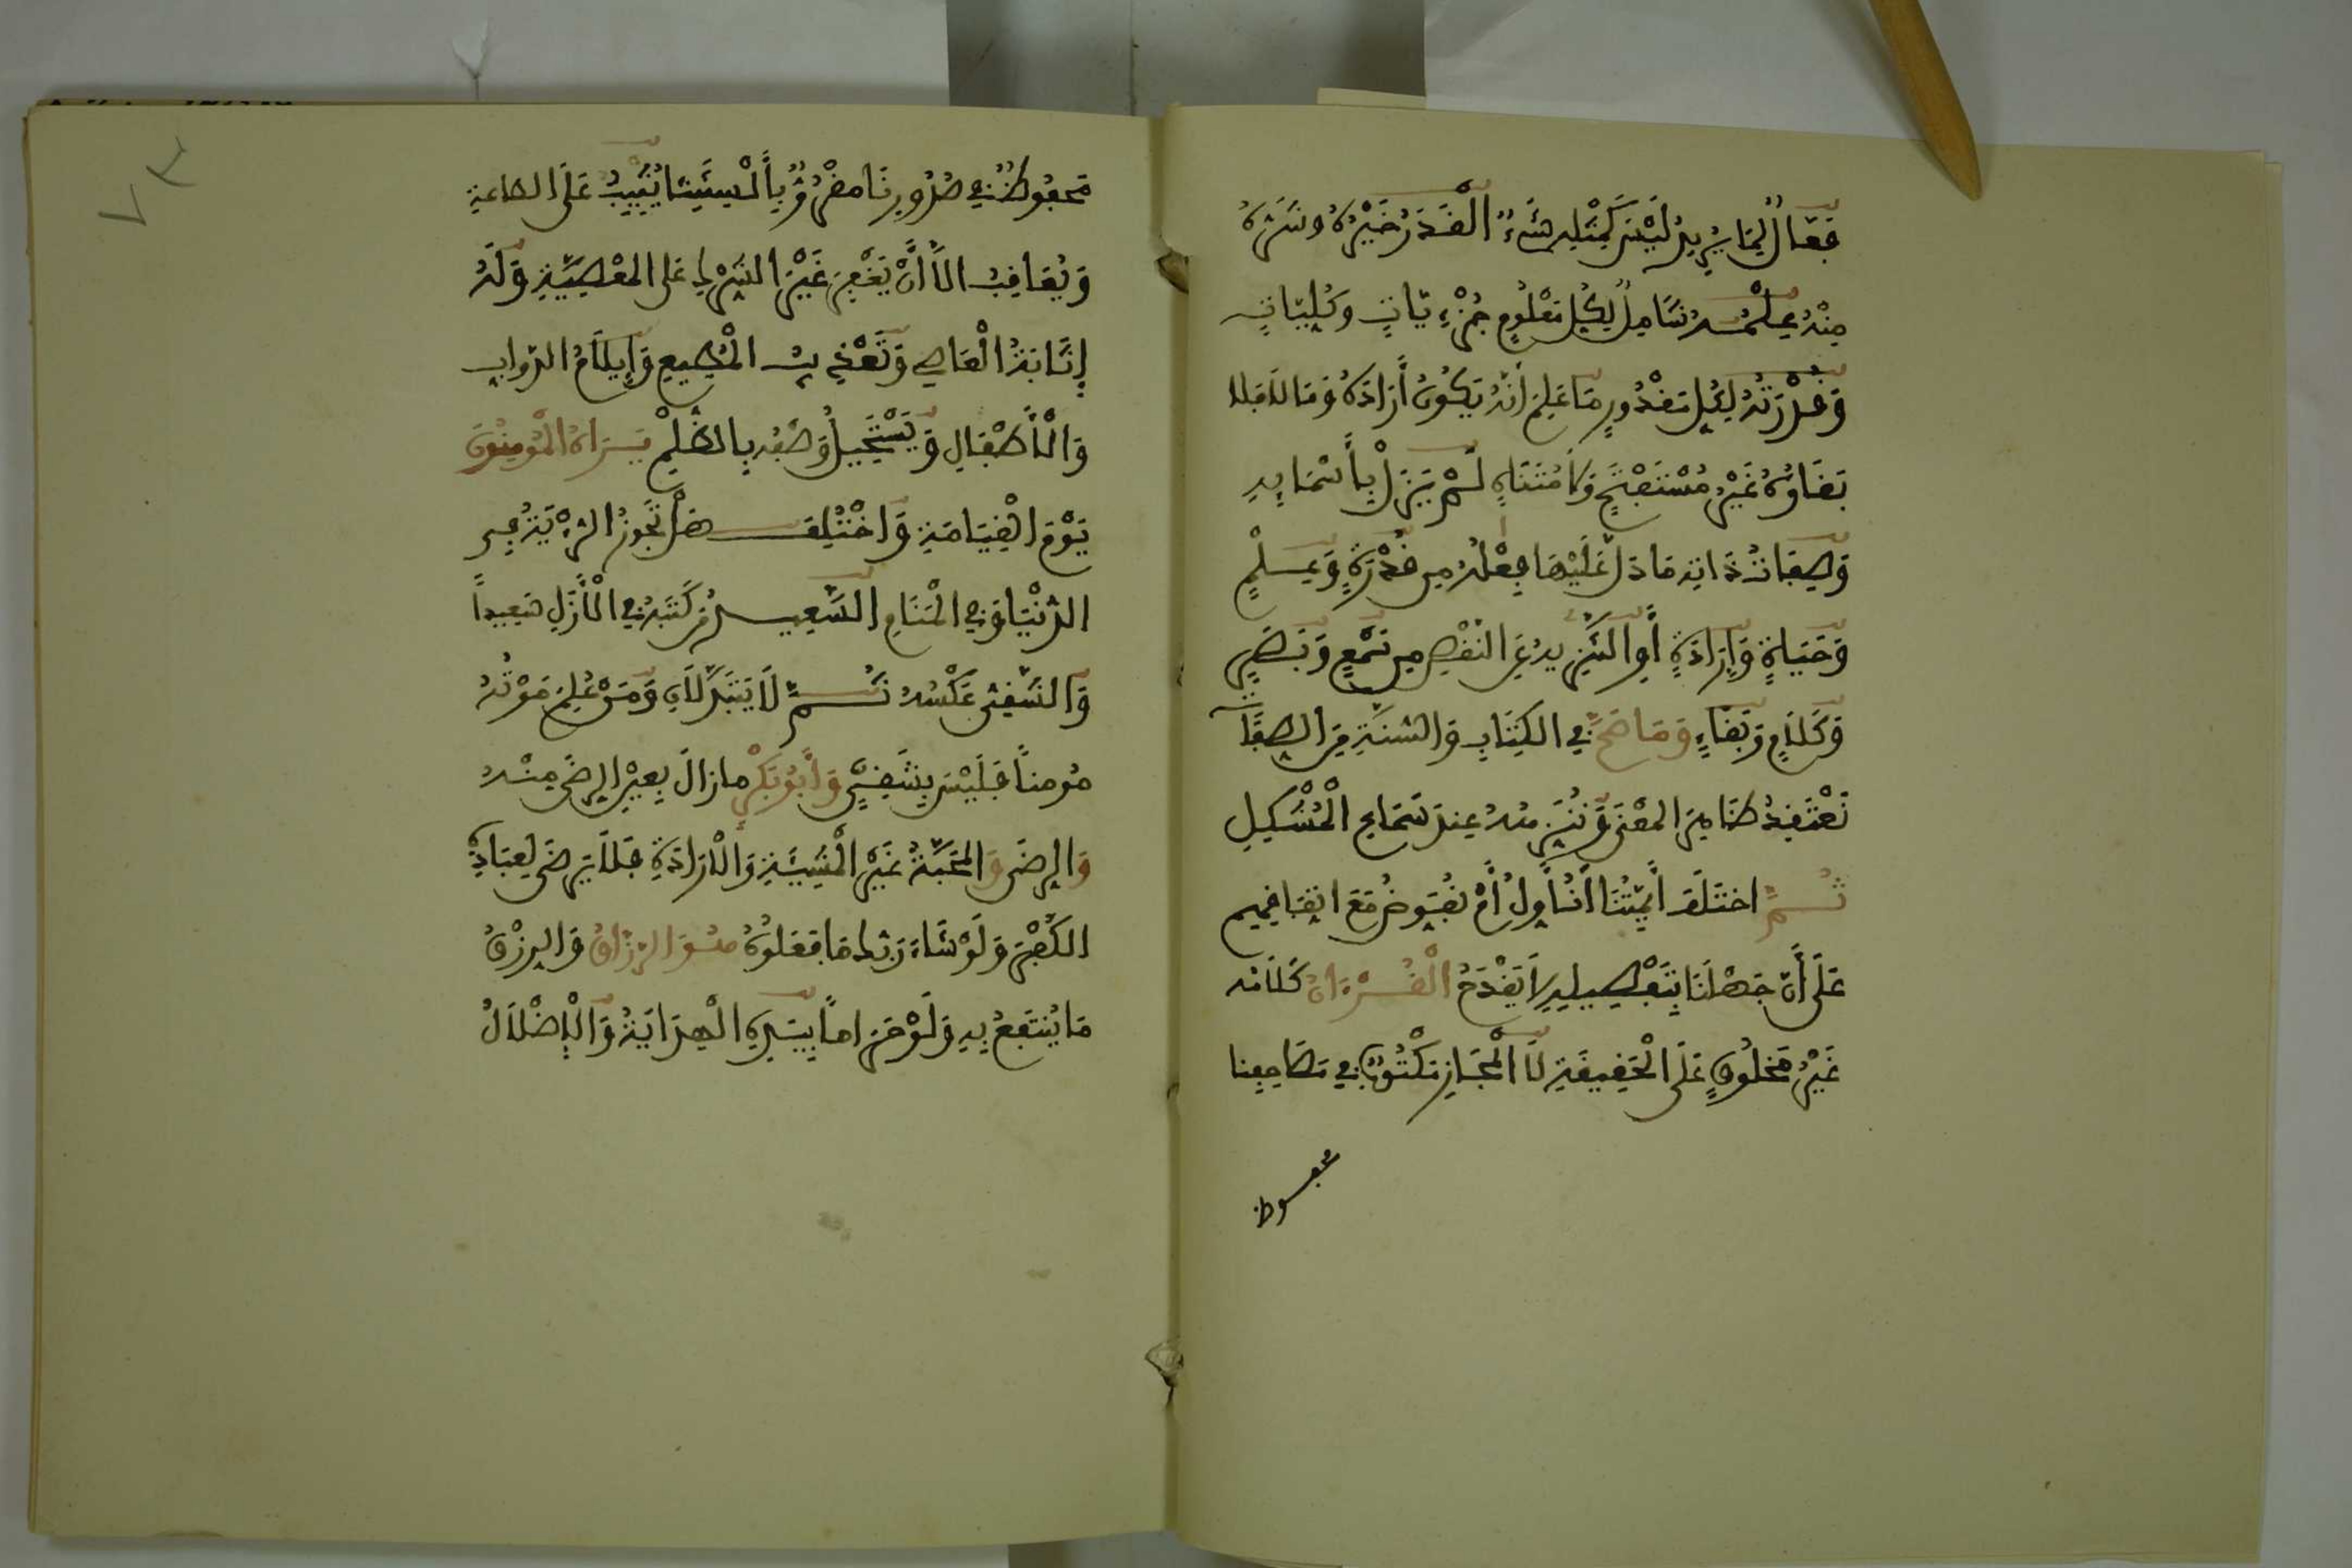 فَعَّالٌ لِمَا يُرِيدُ لَيْسَ كَمِثْلِهِ شَيْءٌ الْقَدَرُ خَيْرُهُ وَشَرُّهُ
مِنْهُ عِلْمُهُ شَامِلٌ لِكُلِّ مَعْلُومٍ جُزْءِيَّاتٍ وَكُلِّيَّاتٍ
وَقُدْرَتُهُ لِكُلِّ مَقْدُورٍ مَا عَلِمَ أَنَّهُ يَكُونُ أَرَادَهُ وَمَا لَا فَلَا
بَقَاؤُهُ غَيْرُ مُسْتَفْتَحٍ وَلَا مُتَنَاهٍ لَمْ يَزَلْ بِأَسْمَايِهِ
وَصِفَاتِ ذَاتِهِ مَا دَلَّ عَلَيْهَا فِعْلُهُ مِن قُدْرَةٍ وَعِلْمٍ
وَحَيَاةٍ وَإِرَادَةٍ أَوِ التَّنْزِيهُ عَنِ النَّقْصِ مِن سَمْعٍ وَبَصَرٍ
وَكَلَامٍ وَبَقَاءٍ وَمَا صَحَّ فِي الكِتَابِ وَالسُّنَّةِ مِنَ الصِّفَاتِ
نَعْتَقِدُ ظَاهِرَ المَعْنَى وَنُنَزِّهُهُ عِندَ سَمَاعِ الْمُشْكِلِ
ثُمَّ اخْتَلَفَ أَيِمَّتُنَا أَنُأَوِّلُ أَمْ نُفَوِّضُ مَعَ اتِّفَاقِهِم
عَلَى أَنَّ جَهْلَنَا بِتَفْصِيلِهِ لَا يَقْدَحُ الْقُرْءَانُ كَلَامُهُ
غَيْرُ مَخْلُوقٍ عَلَى الْحَقِيقَةِ لَا الْمَجَازِ مَكْتُوبٌ فِي مَصَاحِفِنَا
محفوظ
مَحْفُوظٌ فِي صُدُورِنَا مَقْرُوٌّ بِأَلْسِنَتِنَا يُثِيبُ عَلَى الطَّاعَةِ
وَيُعَاقِبُ إِلَّا أَنْ يَغْفِرَ غَيْرَ الشِّرْكِ عَلَى المَعْصِيَةِ وَلَهُ
إِثَابَةُ الْعَاصِي وَتَعْذِيبُ الْمُطِيعِ وَإِيلَامُ الدَّوَابِ
وَالْأَطْفَالِ وَيَسْتَحِيلُ وَصْفُهُ بِالظُّلْمِ يَرَاهُ الْمُؤْمِنُونَ
يَوْمَ الْقِيَامَةِ وَاخْتُلِفَ هَلْ تَجُوزُ الرُّؤْيَةُ فِي
الدُّنْيَا وَفِي الْمَنَامِ السَّعِيدُ مَن كَتَبَهُ فِي الْأَزَلِ سَعِيداً
وَالشَّقِيُّ عَكْسُهُ ثُمَّ لَا يَتَبَدَّلَانِ وَمَنْ عُلِمَ مَوْتُهُ
مُومِناً فَلَيْسَ بِشَقِيٍّ وَأَبُو بَكْرٍ مَا زَالَ بِعَيْنِ الرِّضَى مِنْهُ
وَالرِّضَى وَالمَحَبَّةُ غَيْرُ الْمَشِيئَةِ وَالْإِرَادَةِ فَلَا يَرْضَى لِعِبَادِهِ
الكُفْرَ وَلَوْ شَاءَ رَبُّكَ مَا فَعَلُوهُ هُوَ الرَّزَّاقُ وَالرِّزْقُ
مَا يُنتَفَعُ بِهِ وَلَوْ حَرَاماً بِيَدِهِ الْهِدَايَةُ وَالْإِضْلَالُ